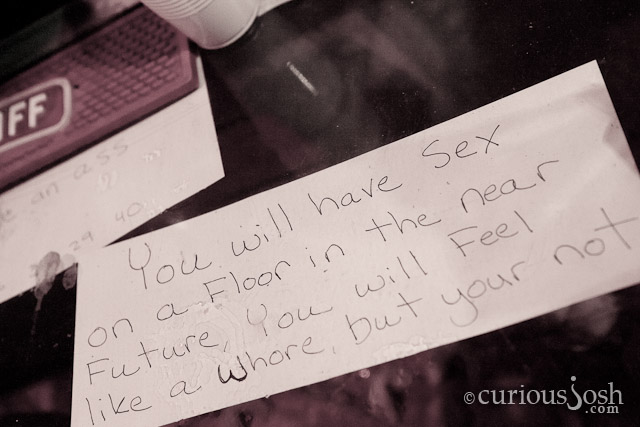 FF
an ass
29 40
You will have Sex
on a Floor in the near
Future, You will Feel
like a whore, but your not
©curiousJosh
.com